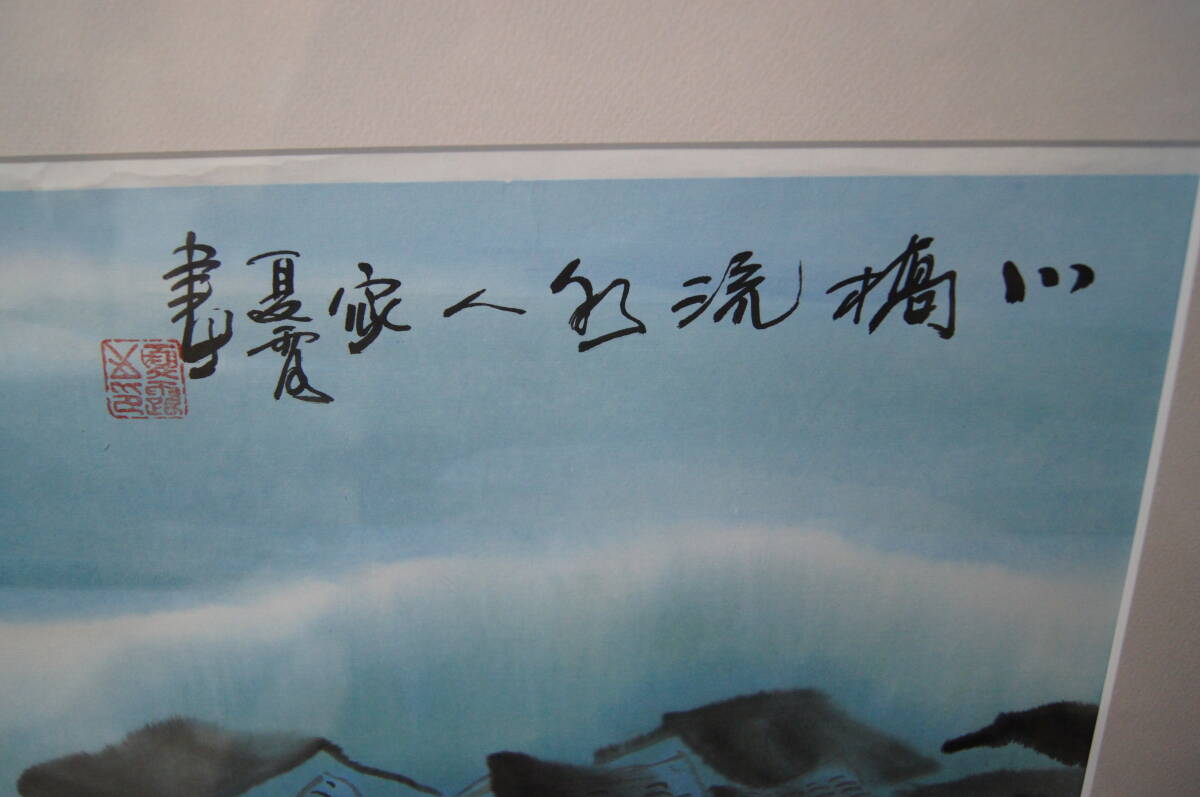 小橋流水人家
夏霞畫